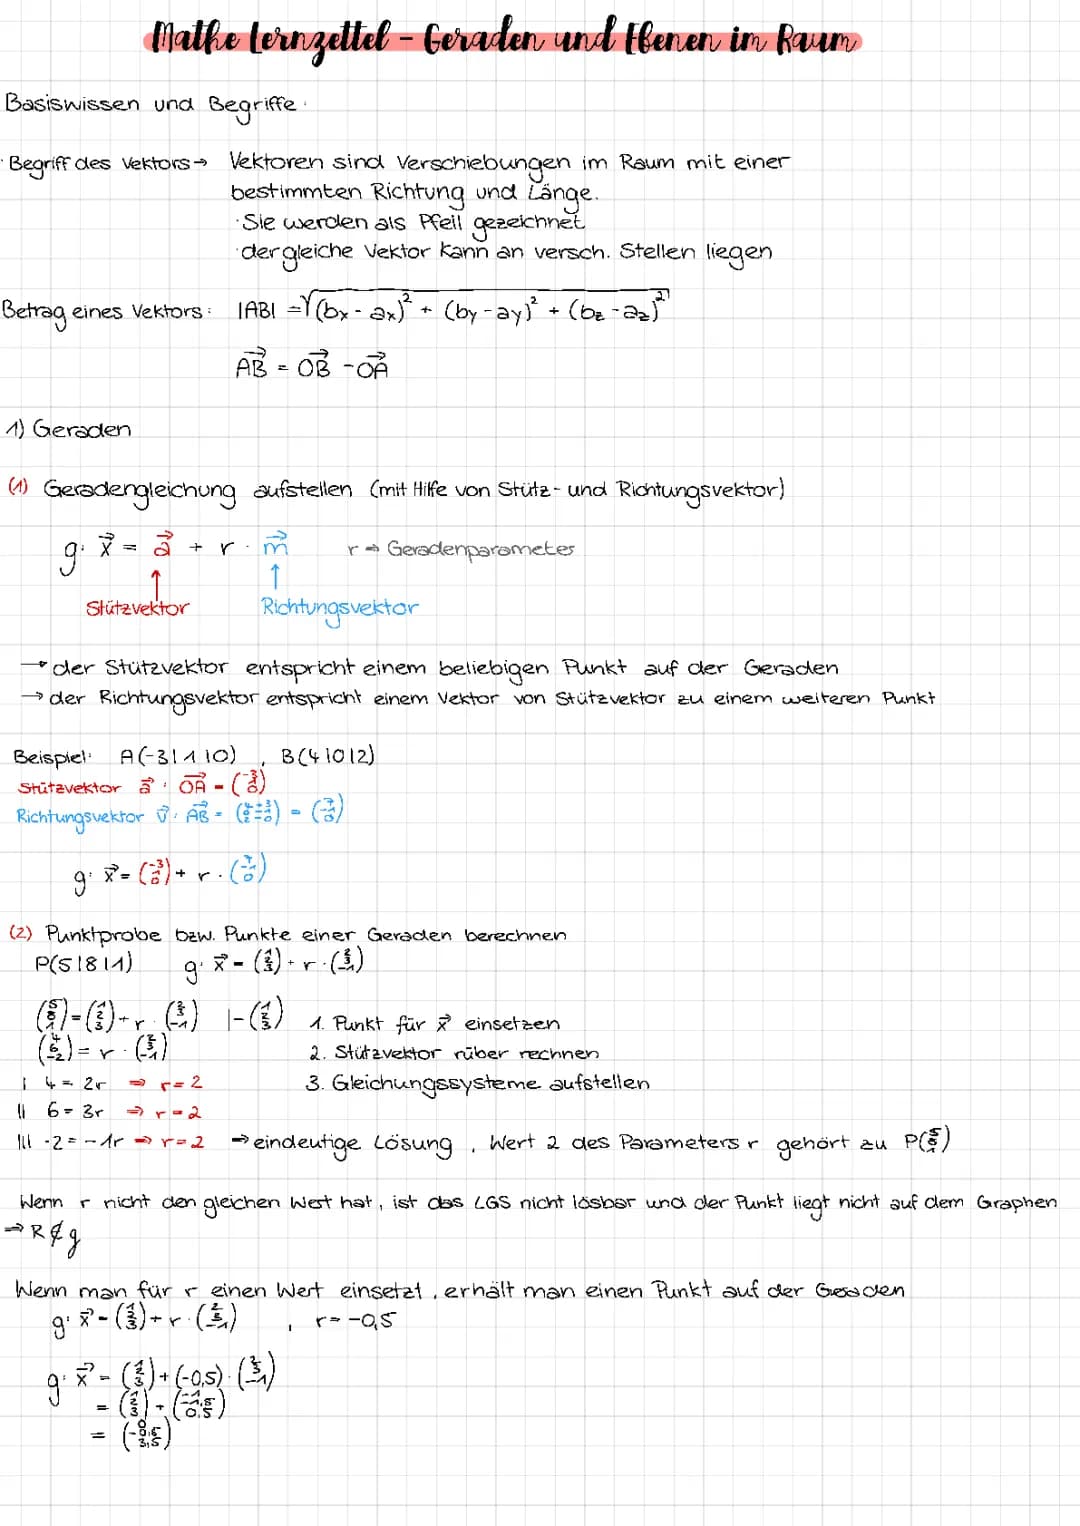 Mathe Lernzettel - Geraden und Ebenen im Raum
Basiswissen und Begriffe:
· Begriff des Vektors → Vektoren sind Verschiebungen im Raum mit einer
bestimmten Richtung und Länge.
· Sie werden als Pfeil gezeichnet
· der gleiche Vektor kann an versch. Stellen liegen
Betrag eines Vektors: |AB| = √(bx - ax)² + (by - ay)² + (bz - az)²
AB = OB - OA
1) Geraden
(1) Geradengleichung aufstellen (mit Hilfe von Stütz- und Richtungsvektor)
g: x = a + r · m r → Geradenparameter
↑ ↑
Stützvektor Richtungsvektor
→ der Stützvektor entspricht einem beliebigen Punkt auf der Geraden
→ der Richtungsvektor entspricht einem Vektor von Stützvektor zu einem weiteren Punkt
Beispiel: A(-3|1|0) , B(4|0|2)
Stützvektor a : OA = (-3 1 0)
Richtungsvektor v : AB =
g: x = (-3 1 0) + r ·
(2) Punktprobe bzw. Punkte einer Geraden berechnen
P(5|8|1) g: x = (1 2 3) + r · (2 3 -1)
(5 8 1) = (1 2 3) + r · (2 3 -1) |-(1 2 3) 1. Punkt für x einsetzen
(4 6 -2) = r · (2 3 -1) 2. Stützvektor rüber rechnen
I 4 = 2r ⇒ r = 2 3. Gleichungssysteme aufstellen
II 6 = 3r ⇒ r = 2
III -2 = -1r ⇒ r = 2 → eindeutige Lösung , Wert 2 des Parameters r gehört zu P(5 8 1)
Wenn r nicht den gleichen Wert hat, ist das LGS nicht lösbar und der Punkt liegt nicht auf dem Graphen
⇒ R ∉ g
Wenn man für r einen Wert einsetzt, erhält man einen Punkt auf der Geraden
g: x = (1 2 3) + r · (2 3 -1) , r = -0,5
g: x = (1 2 3) + (-0,5) · (2 3 -1)
= (1 2 3) + (-1 -1,5 0,5)